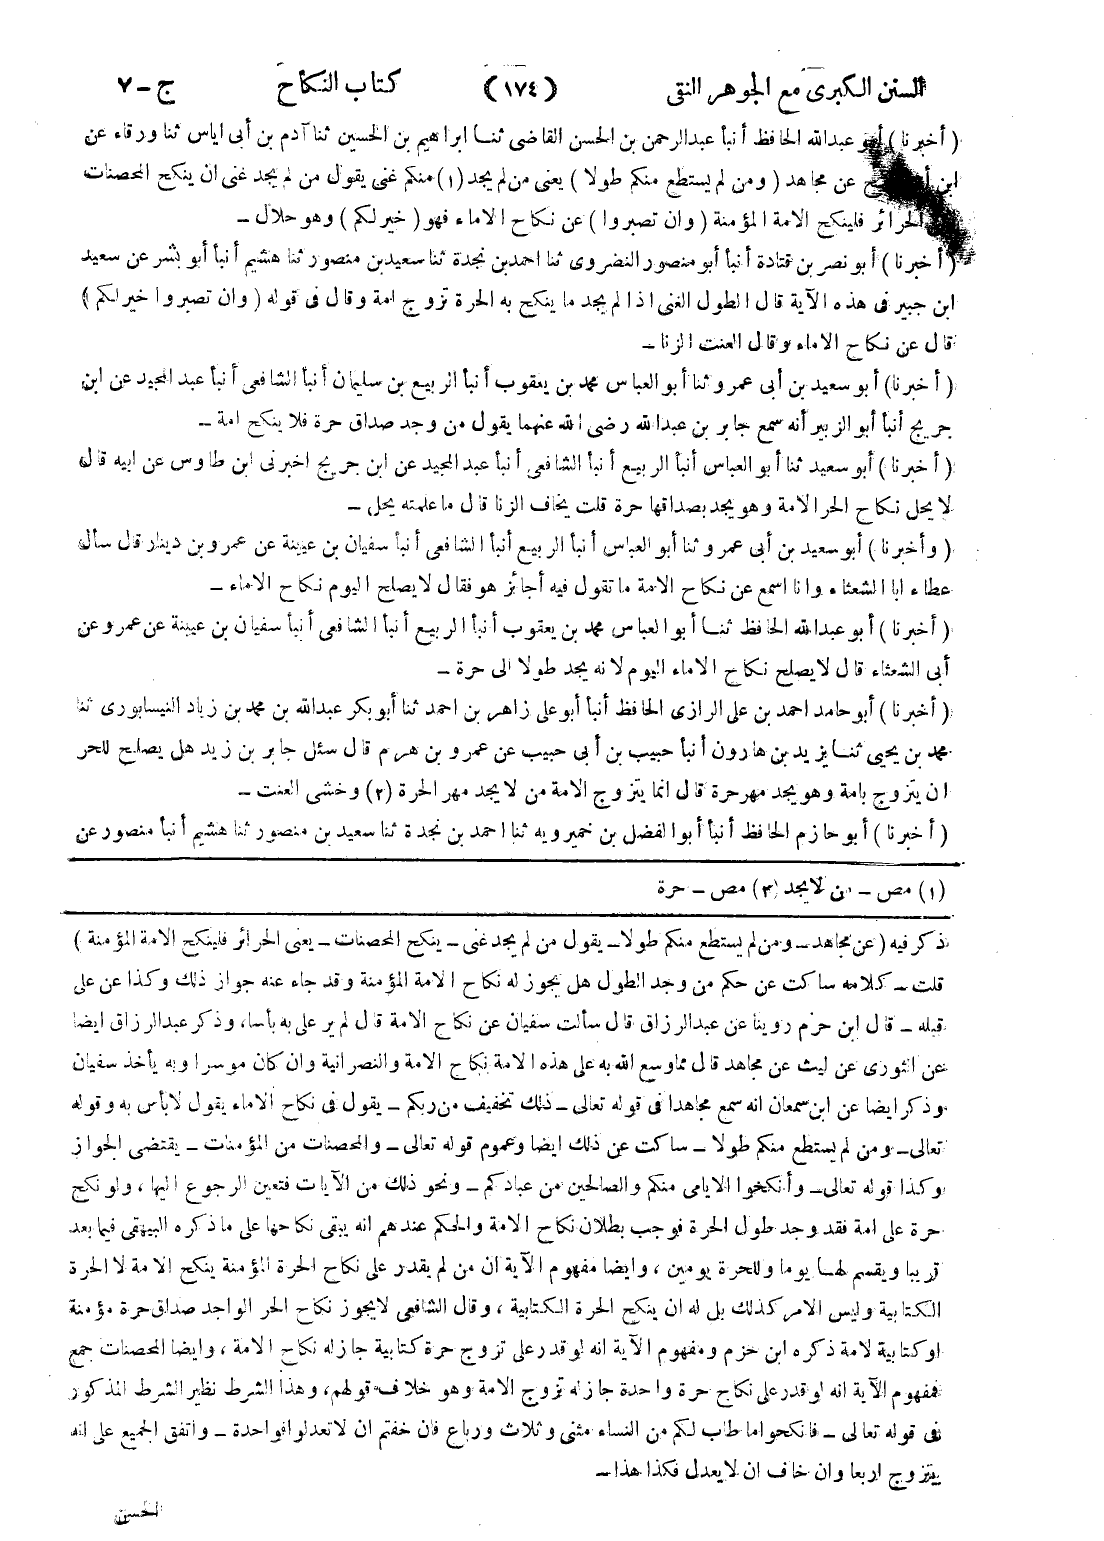 السنن الكبرى مع الجوهر النقى (١٧٤) كتاب النكاح ج - ٧
(أخبرنا) أبو عبدالله الحافظ أنبأ عبدالرحمن بن الحسن القاضى ثنا ابراهيم بن الحسين ثنا آدم بن أبى اياس ثنا ورقاء عن
ابن عن مجاهد (ومن لم يستطع منكم طولا) يعنى من لم يجد (١) منكم غنى يقول من لم يجد غنى ان ينكح المحصنات
الحرائر فلينكح الامة المؤمنة (وان تصبروا) عن نكاح الاماء فهو (خير لكم) وهو حلال -
(أخبرنا) أبو نصر بن قتادة أنبأ أبو منصور النضروى ثنا احمد بن نجدة ثنا سعيد بن منصور ثنا هشيم أنبأ أبو بشر عن سعيد
ابن جبير فى هذه الآية قال الطول الغنى اذا لم يجد ما ينكح به الحرة تزوج امة وقال فى قوله (وان تصبروا خير لكم)
قال عن نكاح الاماء وقال العنت الزنا -
(أخبرنا) أبو سعيد بن أبى عمرو ثنا أبو العباس محمد بن يعقوب أنبأ الربيع بن سليمان أنبأ الشافعى أنبأ عبد المجيد عن ابن
جريج أنبأ أبو الزبير أنه سمع جابر بن عبدالله رضى الله عنهما يقول من وجد صداق حرة فلا ينكح امة -
(أخبرنا) أبو سعيد ثنا أبو العباس أنبأ الربيع أنبأ الشافعى أنبأ عبد المجيد عن ابن جريج اخبرنى ابن طاوس عن ابيه قال
لا يحل نكاح الحر الامة وهو يجد بصداقها حرة قلت يخاف الزنا قال ما علمته يحل -
(وأخبرنا) أبو سعيد بن أبى عمرو ثنا أبو العباس أنبأ الربيع أنبأ الشافعى أنبأ سفيان بن عيينة عن عمرو بن دينار قال سأل
عطاء ابا الشعثاء وانا اسمع عن نكاح الامة ما تقول فيه أجائز هو فقال لا يصلح اليوم نكاح الاماء -
(أخبرنا) أبو عبدالله الحافظ ثنا أبو العباس محمد بن يعقوب أنبأ الربيع أنبأ الشافعى أنبأ سفيان بن عيينة عن عمرو عن
أبى الشعثاء قال لا يصلح نكاح الاماء اليوم لانه يجد طولا الى حرة -
(أخبرنا) أبو حامد احمد بن على الرازى الحافظ أنبأ أبو على زاهر بن احمد ثنا أبو بكر عبدالله بن محمد بن زياد النيسابورى ثنا
محمد بن يحيى ثنا يزيد بن هارون أنبأ حبيب بن أبى حبيب عن عمرو بن هرم قال سئل جابر بن زيد هل يصلح للحر
ان يتزوج بامة وهو يجد مهر حرة قال انما يتزوج الامة من لا يجد مهر الحرة (٢) وخشى العنت -
(أخبرنا) أبو حازم الحافظ أنبأ أبو الفضل بن خميرويه ثنا احمد بن نجدة ثنا سعيد بن منصور ثنا هشيم أنبأ منصور عن
(١) مص - من لا يجد (٣) مص - حرة
ذكر فيه (عن مجاهد - ومن لم يستطع منكم طولا - يقول من لم يجد غنى - ينكح المحصنات - يعنى الحرائر فلينكح الامة المؤمنة)
قلت - كلامه ساكت عن حكم من وجد الطول هل يجوز له نكاح الامة المؤمنة وقد جاء عنه جواز ذلك وكذا عن على
قبله - قال ابن حزم روينا عن عبدالرزاق قال سألت سفيان عن نكاح الامة قال لم ير على به بأسا، وذكر عبدالرزاق ايضا
عن الثورى عن ليث عن مجاهد قال مما وسع الله به على هذه الامة نكاح الامة والنصرانية وان كان موسرا وبه يأخذ سفيان
وذكر ايضا عن ابن سمعان انه سمع مجاهدا فى قوله تعالى - ذلك تخفيف من ربكم - يقول فى نكاح الاماء يقول لا بأس به وقوله
تعالى - ومن لم يستطع منكم طولا - ساكت عن ذلك ايضا وعموم قوله تعالى - والمحصنات من المؤمنات - يقتضى الجواز
وكذا قوله تعالى - وأنكحوا الايامى منكم والصالحين من عبادكم - ونحو ذلك من الآيات فتعين الرجوع اليها، ولو نكح
حرة على امة فقد وجد طول الحرة فوجب بطلان نكاح الامة والحكم عندهم انه يبقى نكاحها على ما ذكره البيهقى فيما بعد
قريبا ويقسم لها يوما وللحرة يومين، وايضا مفهوم الآية ان من لم يقدر على نكاح الحرة المؤمنة ينكح الامة لا الحرة
الكتابية وليس الامر كذلك بل له ان ينكح الحرة الكتابية، وقال الشافعى لا يجوز نكاح الحر الواجد صداق حرة مؤمنة
او كتابية لامة ذكره ابن حزم ومفهوم الآية انه لو قدر على تزوج حرة كتابية جاز له نكاح الامة، وايضا المحصنات جمع
فمفهوم الآية انه لو قدر على نكاح حرة واحدة جاز له تزوج الامة وهو خلاف قولهم، وهذا الشرط نظير الشرط المذكور
فى قوله تعالى - فانكحوا ما طاب لكم من النساء مثنى وثلاث ورباع فان خفتم ان لا تعدلوا فواحدة - واتفق الجميع على انه
يتزوج اربعا وان خاف ان لا يعدل فكذا هذا -
الحسن